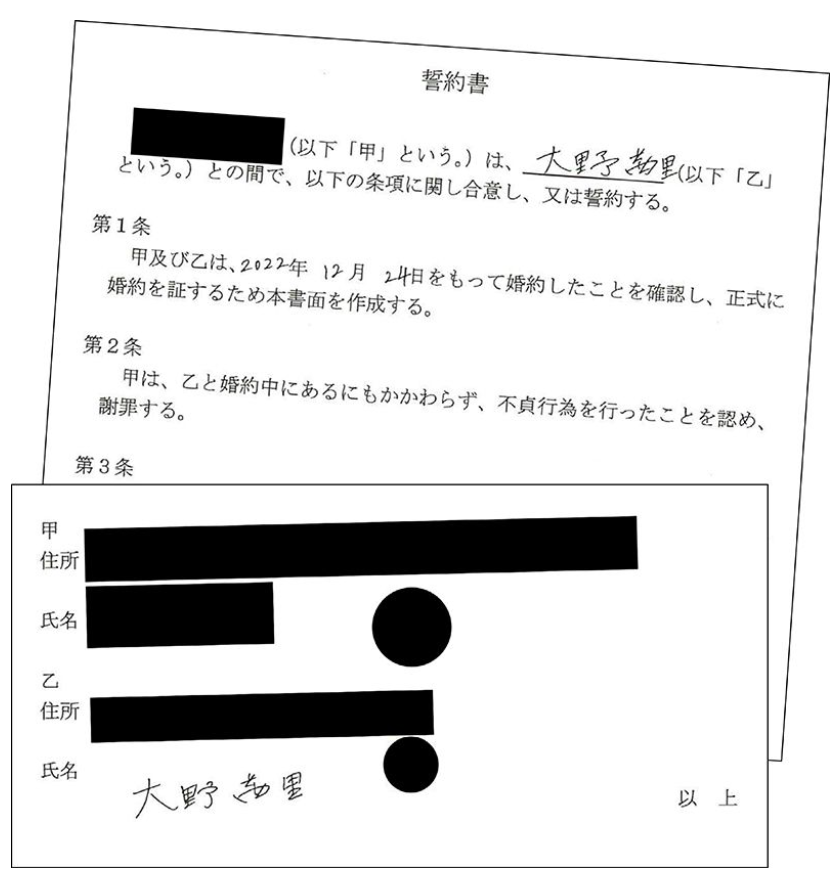 誓約書
(以下「甲」という。)は、大野 (以下「乙」
という。)との間で、以下の条項に関し合意し、又は誓約する。
第1条
甲及び乙は、2022年 12月 24日をもって婚約したことを確認し、正式に
婚約を証するため本書面を作成する。
第2条
甲は、乙と婚約中にあるにもかかわらず、不貞行為を行ったことを認め、
謝罪する。
第3条
甲
住所
氏名
乙
住所
氏名
大野
以 上